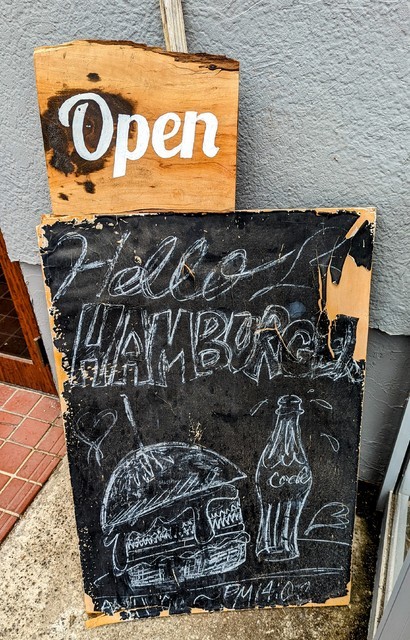 Open
Hello!!
HAMBURGER
Coca
~PM14:00